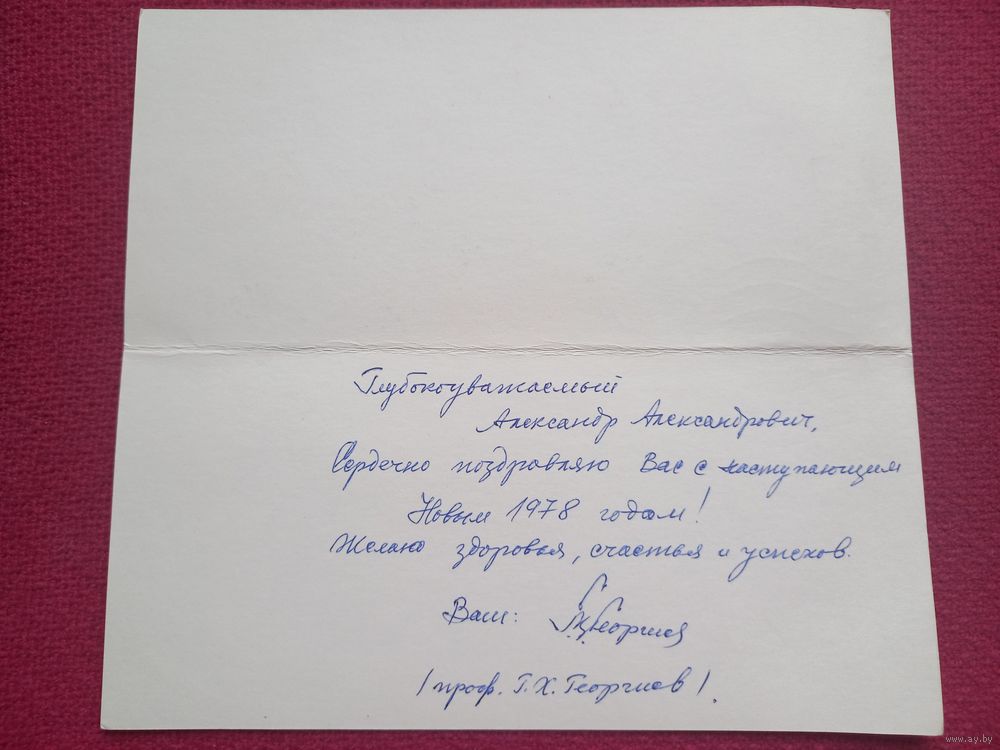 Глубокоуважаемый
Александр Александрович,
Сердечно поздравляю Вас с наступающим
Новым 1978 годом!
Желаю здоровья, счастья и успехов.
Ваш: Георгиев
/проф. Г. Х. Георгиев/.
www.ay.by